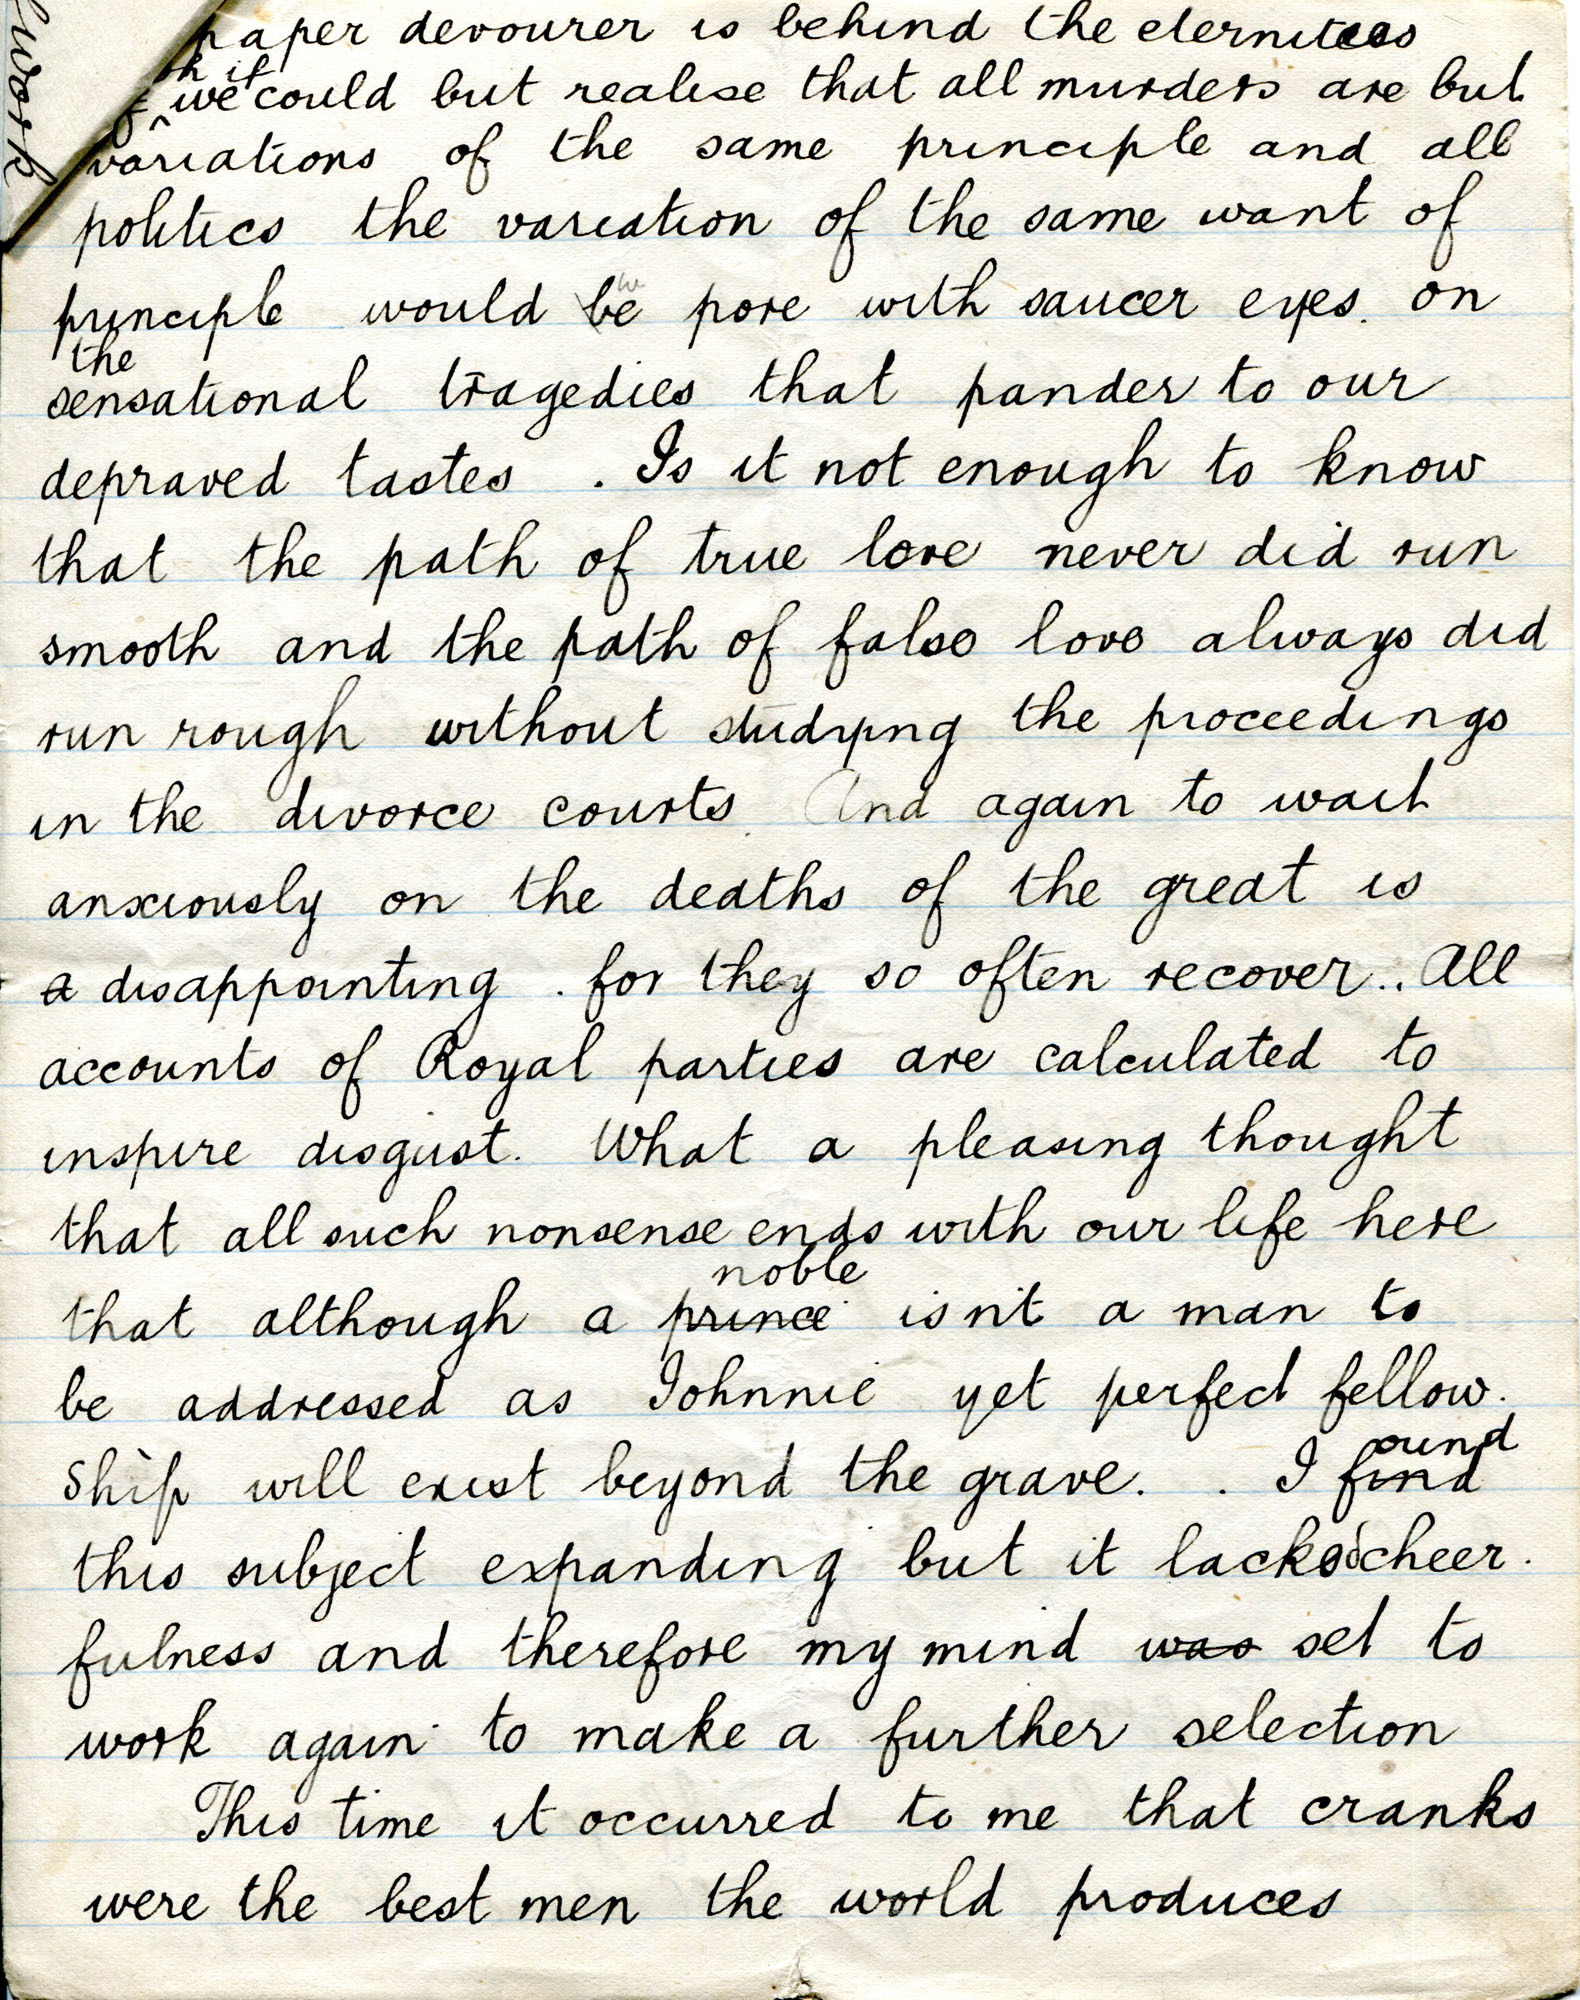 work
paper devourer is behind the eternities
if
we could but realise that all murders are but
variations of the same principle and all
politics the variation of the same want of
principle would be pore with saucer eyes. on
the
sensational tragedies that pander to our
depraved tastes . Is it not enough to know
that the path of true love never did run
smooth and the path of false love always did
run rough without studying the proceedings
in the divorce courts. And again to wait
anxiously on the deaths of the great is
a disappointing . for they so often recover.. All
accounts of Royal parties are calculated to
inspire disgust. What a pleasing thought
that all such nonsense ends with our life here
noble
that although a prince isn't a man to
be addressed as Johnnie yet perfect fellow.
ound
ship will exist beyond the grave. . I find
this subject expanding but it lacked cheer.
fulness and therefore my mind was set to
work again to make a further selection
This time it occurred to me that cranks
were the best men the world produces